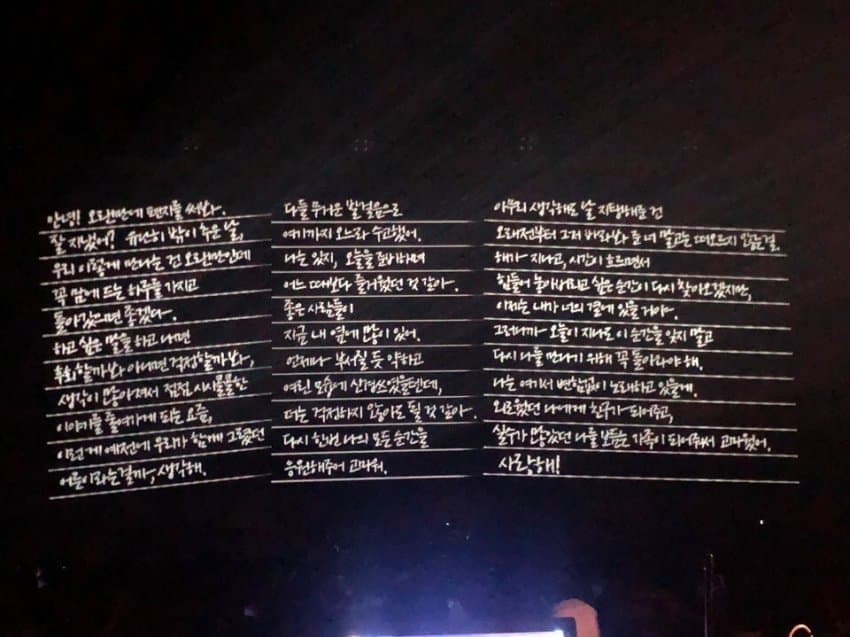 안녕! 오랜만에 편지를 써봐.
잘 지냈어? 유난히 밖이 추운 날,
우리 이렇게 만나는 건 오랜만인데
꼭 맘에 드는 하루를 가지고
돌아갔으면 좋겠다.
하고 싶은 말을 하고 나면
후회할까봐 아니면 걱정할까봐,
생각이 많아져서 점점 시시콜콜한
이야기를 줄여가게 되는 요즘,
이런게 예전에 우리가 함께 그렸던
어른이라는걸까, 생각해.
다들 무거운 발걸음으로
여기까지 오느라 수고했어.
나는 있지, 오늘을 준비하며
어느 때보다 즐거웠던 것 같아.
좋은 사람들이
지금 내 옆에 많이 있어.
언제나 부서질 듯 약하고
여린 모습에 신경쓰였을텐데,
더는 걱정하지 않아도 될 것 같아.
다시 한번 나의 모든 순간을
응원해주어 고마워.
아무리 생각해도 날 지탱해준 건
오래전부터 그저 바라봐 준 너 말고는 떠오르지 않는걸.
해가 지나고, 시간이 흐르면서
힘들어 놓아버리고 싶은 순간이 다시 찾아오겠지만,
이제는 내가 너의 곁에 있을거야.
그러니까 오늘이 지나도 이 순간을 잊지 말고
다시 나를 만나기 위해 꼭 돌아와야 해.
나는 여기서 변함없이 노래하고 있을게.
외로웠던 나에게 친구가 되어주고,
실수가 많았던 나를 보듬는 가족이 되어줘서 고마웠어.
사랑해!